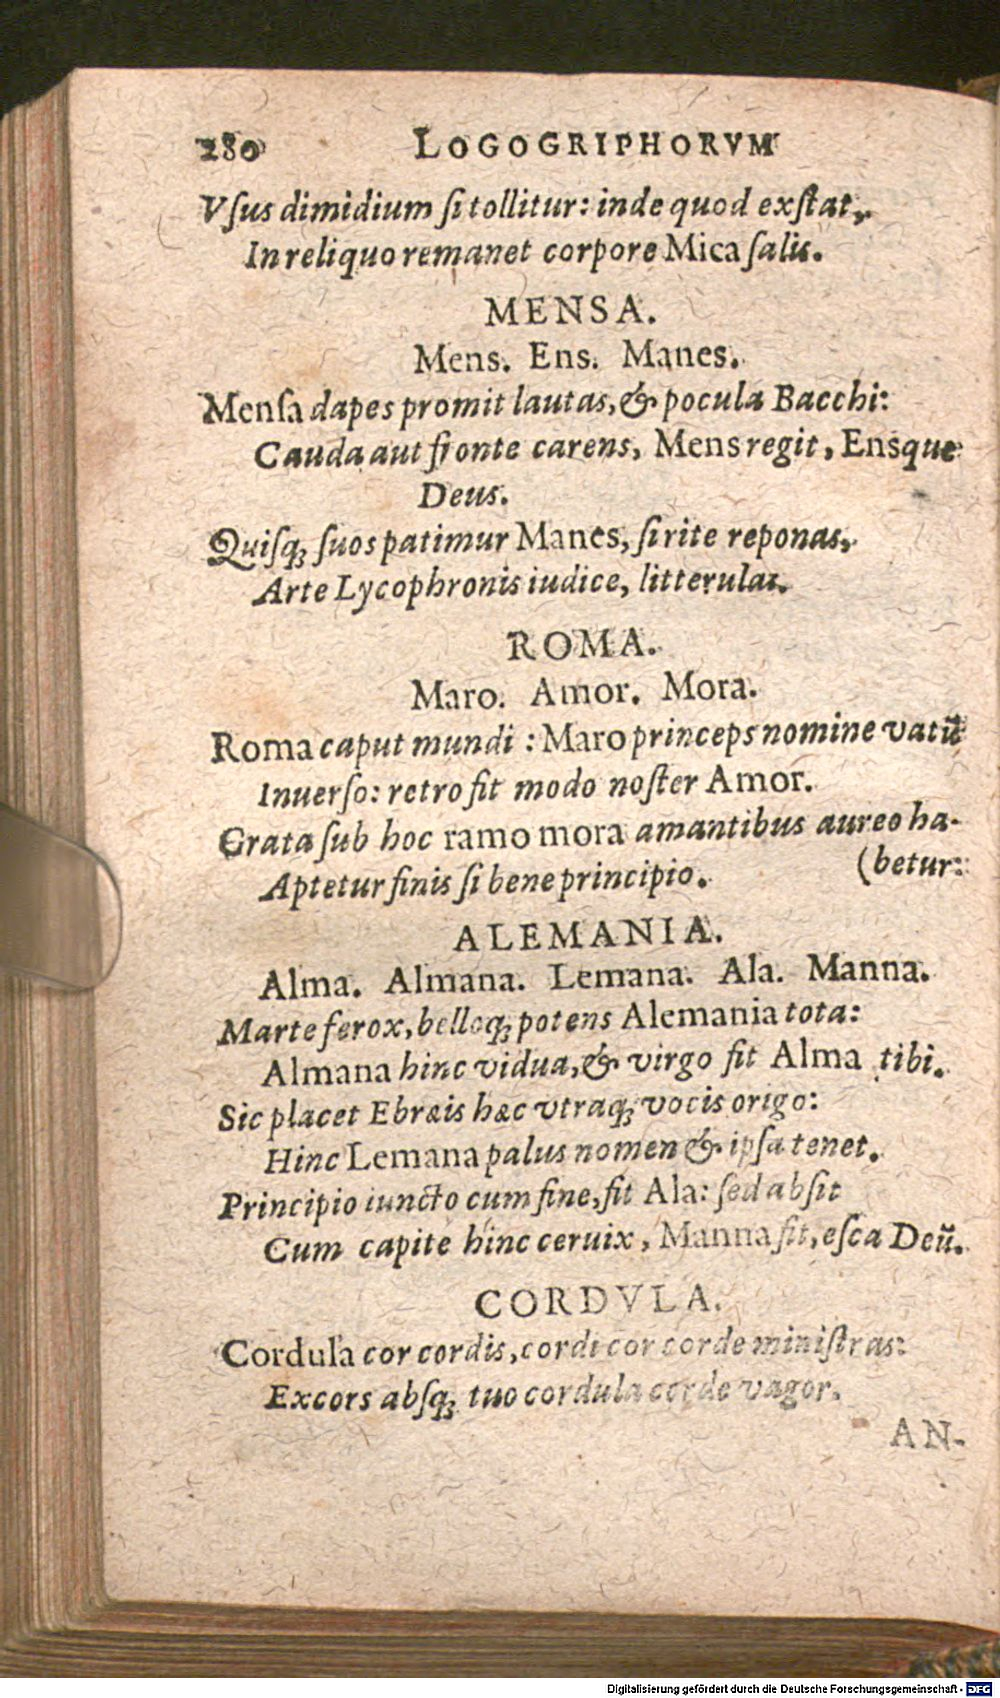 280 LOGOGRIPHORVM
Vſus dimidium ſi tollitur: inde quod exſtat,
In reliquo remanet corpore Mica ſalis.
MENSA.
Mens. Ens. Manes.
Menſa dapes promit lautas, & pocula Bacchi:
Cauda aut fronte carens, Mens regit, Ensque
Deus.
Quiſq; ſuos patimur Manes, ſi rite reponas,
Arte Lycophronis iudice, litterulas.
ROMA.
Maro. Amor. Mora.
Roma caput mundi: Maro princeps nomine vatũ
Inuerſo: retro fit modo noſter Amor.
Grata ſub hoc ramo mora amantibus aureo ha-
(betur:
Aptetur finis ſi bene principio.
ALEMANIA.
Alma. Almana. Lemana. Ala. Manna.
Marte ferox, belloq; potens Alemania tota:
Almana hinc vidua, & virgo fit Alma tibi.
Sic placet Ebræis hæc vtraq; vocis origo:
Hinc Lemana palus nomen & ipſa tenet.
Principio iuncto cum fine, fit Ala: ſed abſit
Cum capite hinc ceruix, Manna fit, eſca Deũ.
CORDVLA.
Cordula cor cordis, cordi cor corde miniſtras:
Excors abſq; tuo cordula corde vagor.
AN-
Digitalisierung gefördert durch die Deutsche Forschungsgemeinschaft - DFG